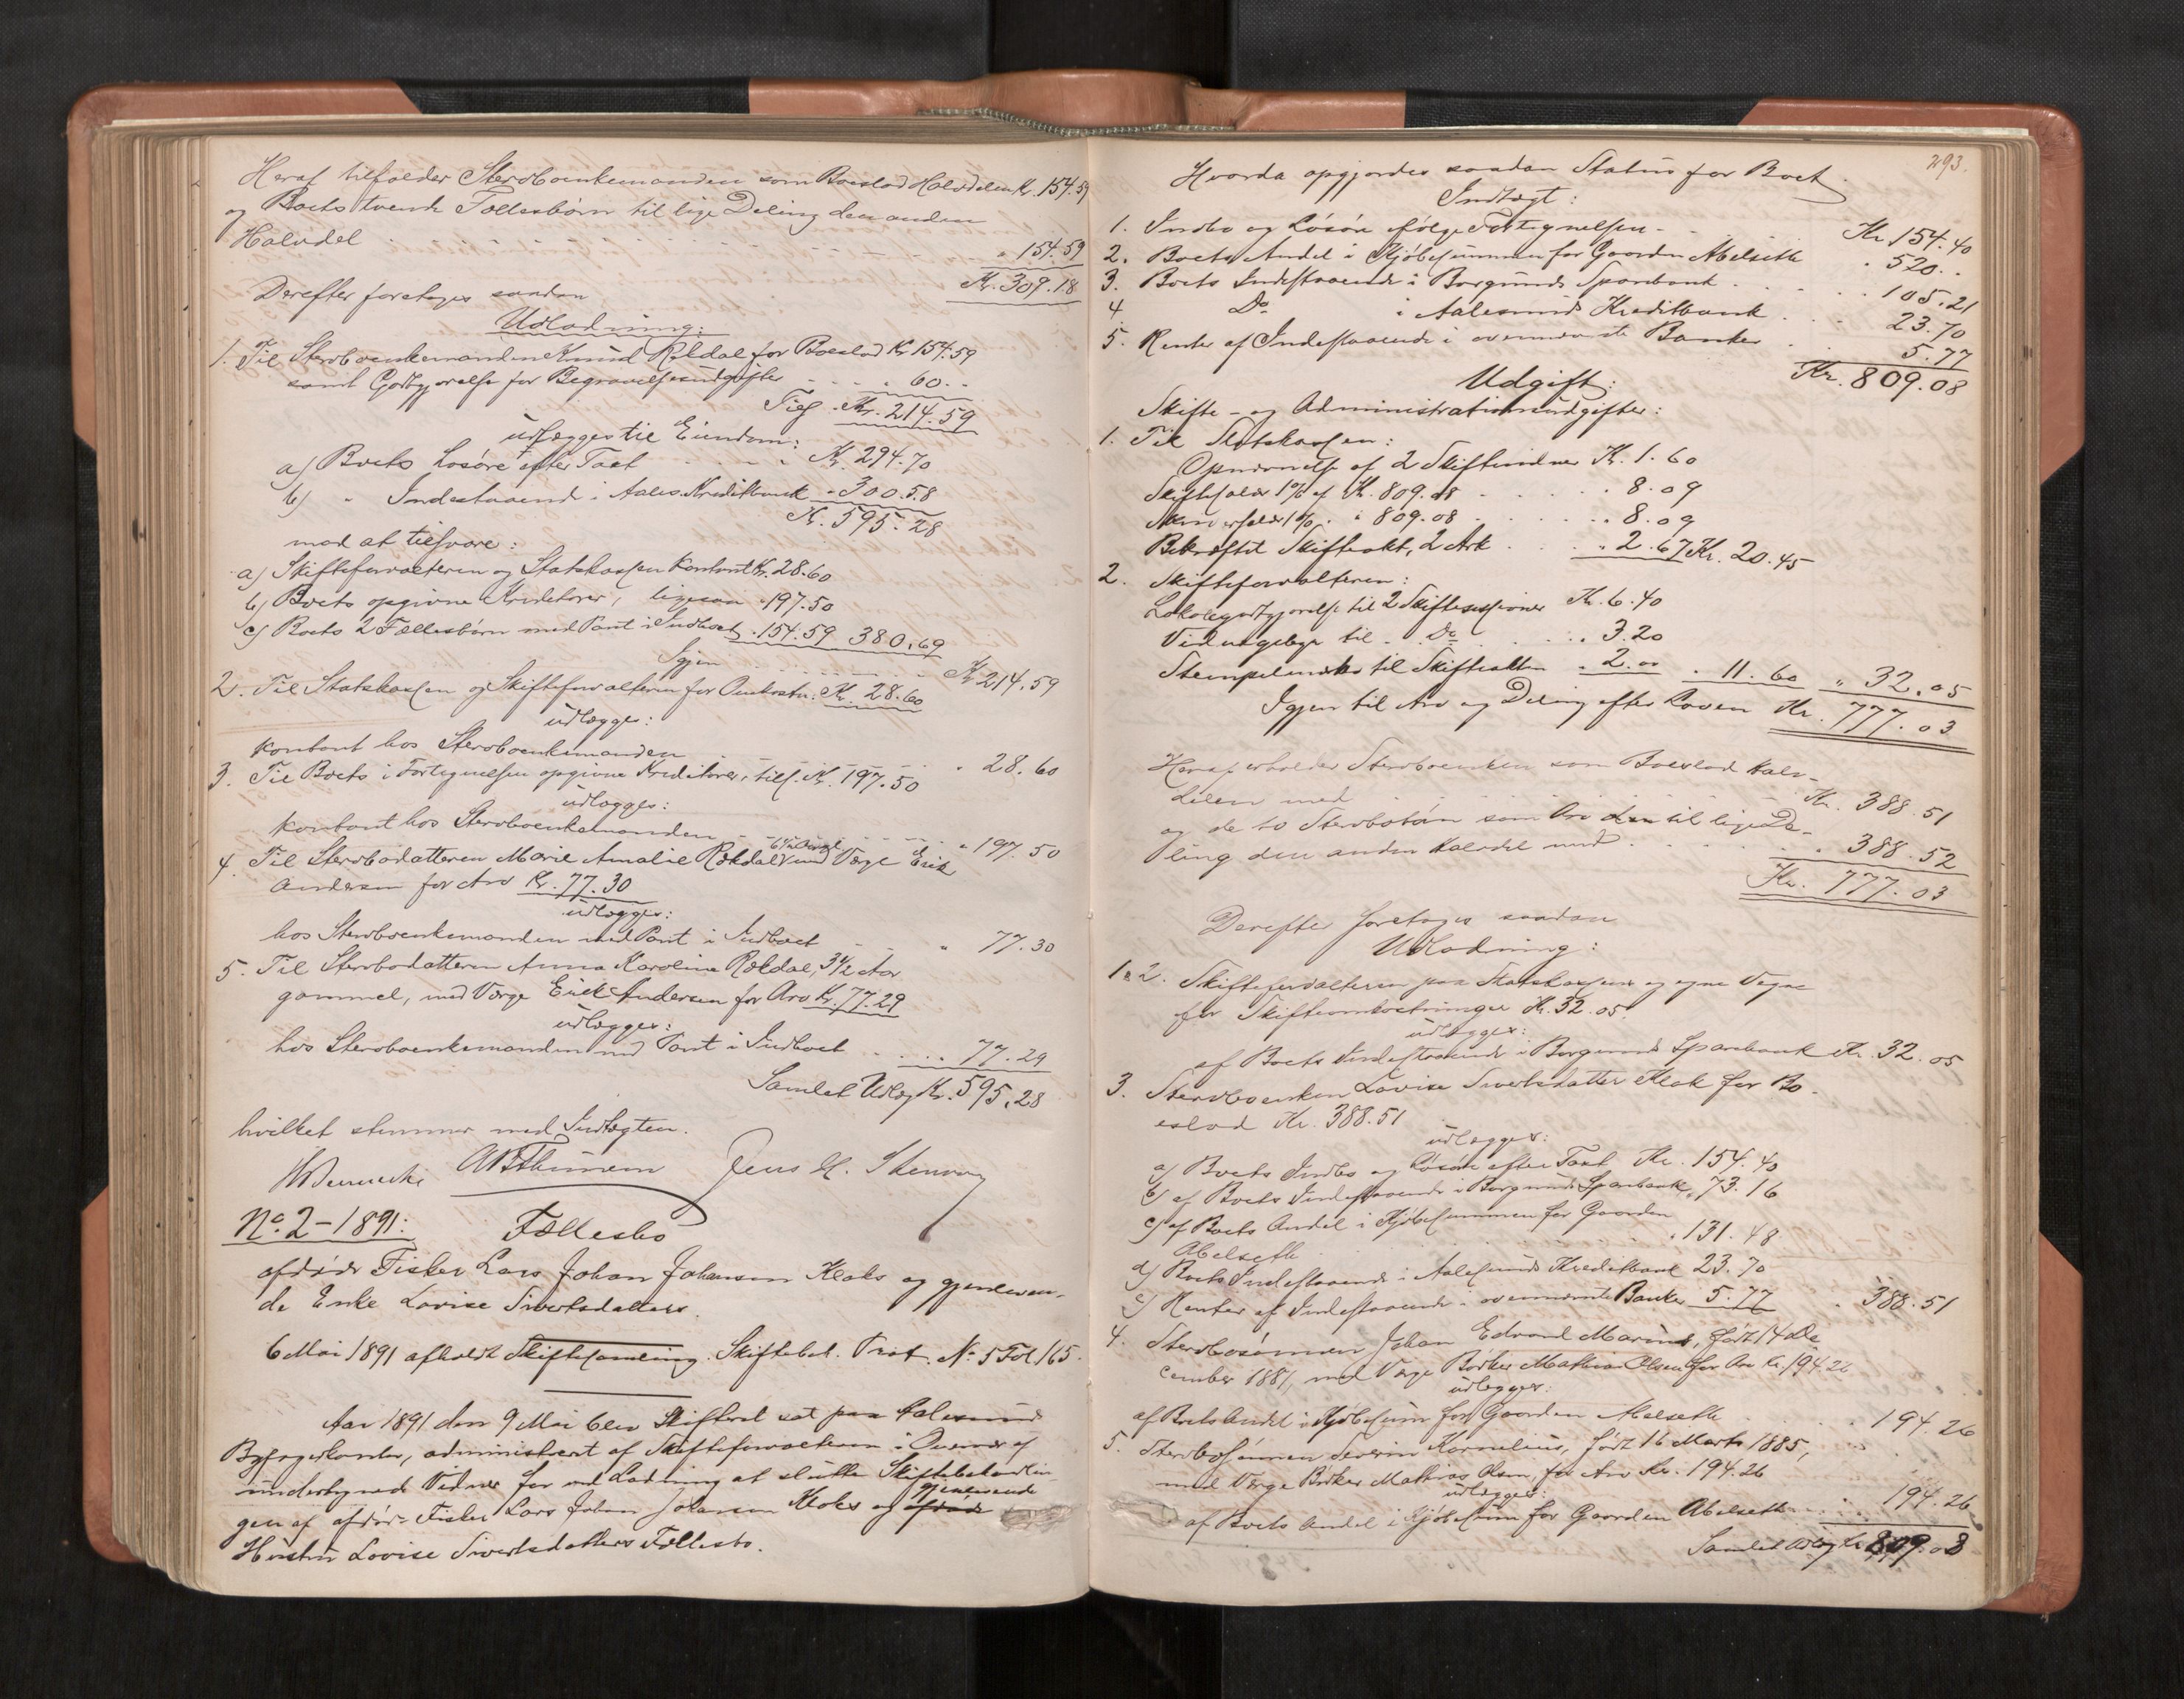 Heraf tilfalder Sterboenkemanden som Boeslod Halvdelen Kr. 154.59
og Boets tvende Fællesbørn til lige Deling den anden
Halvdel . . . . . . . . . . " 154.59
Kr. 309.18
Derefter foretoges saadan
Udlodning:
1. Til Sterboenkemanden Knud Rekdal for Boeslod Kr 154.59
samt Godtgjørelse for Begravelsesudgifter . . . " 60. "
Tils. Kr. 214.59
udlægges til Eiendom:
a) Boets Løsøre efter Taxt . . . . Kr. 294.70
b) " Indestaaende i Aales. Kreditbank " 300.58
Kr. 595.28
mod at tilsvare:
a) Skifteforvalteren og Statskassen kontant Kr. 28.60
b) Boets opgivne Kreditorer, ligesaa " 197.50
c) Boets 2 Fællesbørn med Pant i Indboet " 154.59 380.69
Igjen . . . . . . . Kr 214.59
2. Til Statskassen og Skifteforvalteren for Omkostn. Kr. 28.60
udlægges:
kontant hos Sterboenkemanden . . . . . " 28.60
3. Til Boets i Fortegnelsen opgivne Kreditorer, tils. Kr. 197.50
udlægges:
kontant hos Sterboenkemanden . . . . . " 197.50
4. Til Sterbodatteren Marie Amalie Rekdal med Værge Erik
Andersen for Arv Kr. 77.30
udlægges:
hos Sterboenkemanden med Pant i Indboet . . " 77.30
5. Til Sterbodatteren Anna Karoline Rekdal, 3 1/2 Aar
gammel, med Værge Erik Andersen for Arv Kr. 77.29
udlægges:
hos Sterboenkemanden med Pant i Indboet . . . . 77.29
Samlet Udlæg Kr. 595.28
hvilket stemmer med Indtægten.
Jens H.
No. 2 - 1891: Fællesbo
afdøde Fisker Lars Johan Johansen Kloks og gjenleven-
de Enke Lovise Sivertsdatters.
6 Mai 1891 afholdt Skiftesamling. Skiftebeh. Prot. No 5 Fol 165.
Aar 1891 den 9 Mai blev Skifteret sat paa Aalesunds
Byfogedkontor, administreret af Skifteforvalteren i Overvær af
undertegnede Vidner for ved Lodning at slutte Skiftebehandlin-
gjenlevende
gen af afdøde Fisker Lars Johan Johansen Kloks og afdøde
Hustru Lovise Sivertsdatters Fællesbo.
293.
Hvorda opgjordes saadan Status for Boet.
Indtægt:
1. Indbo og Løsøre ifølge Fortegnelsen - . . . Kr. 154.40
2. Boets Andel i Kjøbesummen for Gaarden Abelseth " 520. "
3. Boets Indestaaende i Borgunds Sparebank . . . . . 105.21
4 Do i Aalesunds Kreditbank . . . 23.70
5. Renter af Indestaaende i ovennævnte Banker . . 5.77
Kr. 809.08
Udgift:
Skifte- og Administrationsudgifter:
1. Til Statskassen:
Opnævnelse af 2 Skiftevidner Kr. 1.60
Skiftesalær 1% af Kr. 809.08 . . . . . 8.09
1% " " 809.08 . . . . . 8.09
Bekræftet Skifteakt, 2 Ark . . . . 2.67 Kr. 20.45
2. Skifteforvalteren:
Lokalegodtgjørelse til 2 Skiftesessioner Kr. 6.40
Vidnegebyr til Do . . . . . 3.20
Stempelmærke til Skifteakten " 2.00 " 11.60 " 32.05
Igjen til Arv og Deling efter Loven Kr. 777.03
Heraf erholder Sterboenken som Boeslod Halv-
delen med . . . . . . . Kr. 388.51
og de to Sterbobørn som Arv den til lige De-
ling den anden Halvdel med . . . . . " 388.52
Kr. 777.03
Derefter foretoges saadan
Udlodning:
1 & 2. Skifteforvalteren paa Statskassens og egne Vegne
for Skifteomkostninger Kr. 32.05.
udlægges:
af Boets Indestaaende i Borgunds Sparebank Kr. 32.05
3. Sterboenken Lovise Sivertsdatter Klok for Bo-
eslod Kr. 388.51
udlægges:
a) Boets Indbo og Løsøre efter Taxt Kr. 154.40
b) af Boets Indestaaende i Borgunds Sparebank " 73.16
c) af Boets Andel i Kjøbesummen for Gaarden
Abelseth . . . . . . . " 131.48
d) Boets Indestaaende i Aalesunds Kreditbank 23.70
e) Renter af Indestaaende i ovennævnte Banker 5.77 " 388.51
4. Sterbosønnen Johan Edvard Marius, født 14 De
cember 1881, med Værge Bødker Mathias Olsen for Arv Kr. 194.26
udlægges:
af Boets Andel i Kjøbesum for Gaarden Abelseth . . . 194.26
5. Sterbosønnen Severin Kornelius, født 16 Marts 1885,
med Værge Bødker Mathias Olsen, for Arv Kr. 194.26
udlægges:
af Boets Andel i Kjøbesum for Gaarden Abelseth . . . 194.26
Samlet Udlæg Kr 809.08